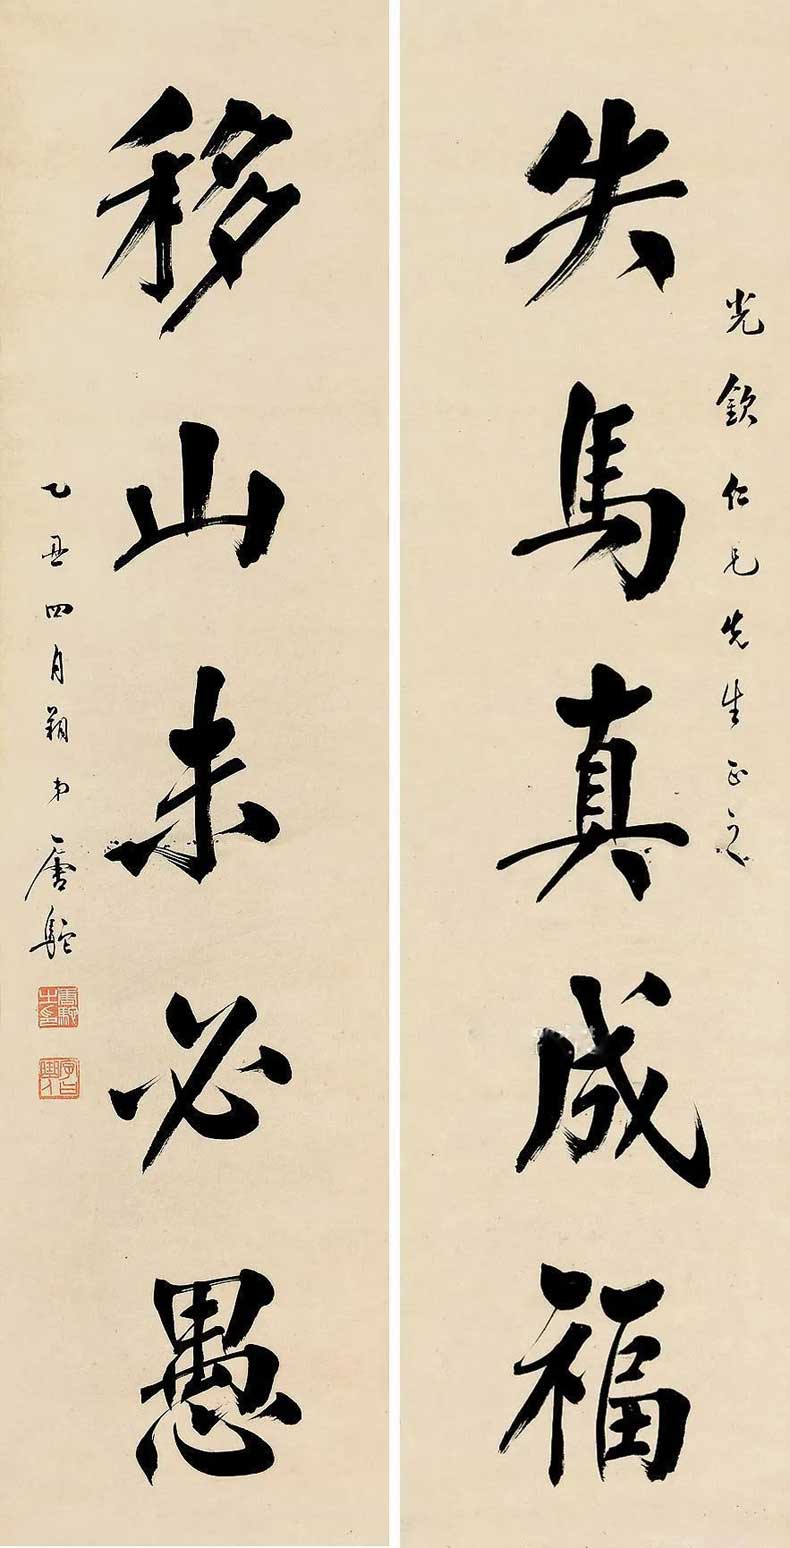 光欽仁兄先生正之
失馬真成福
移山未必愚
乙丑四月朔弟唐駝
唐駝之印